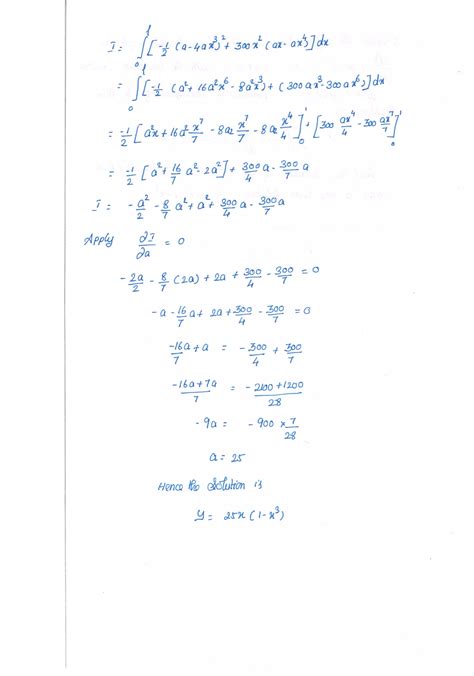 I = ∫₀¹ [-1/2 (a-4ax³)² + 300x² (ax-ax⁴)] dx
= ∫₀¹ [-1/2 (a² + 16a²x⁶ - 8a²x³) + (300ax³ - 300ax⁶)] dx
= -1/2 [a²x + 16a² x⁷/7 - 8a x⁷/7 - 8a x⁴/4]₀¹ + [300 ax⁴/4 - 300 ax⁷/7]₀¹
= -1/2 [a² + 16/7 a² - 2a²] + 300/4 a - 300/7 a
I = -a²/2 - 8/7 a² + a² + 300/4 a - 300/7 a
Apply ∂I/∂a = 0
-2a/2 - 8/7 (2a) + 2a + 300/4 - 300/7 = 0
-a - 16/7 a + 2a + 300/4 - 300/7 = 0
-16a/7 + a = -300/4 + 300/7
-16a+7a/7 = -2100+1200/28
-9a = -900 × 7/28
a = 25
Hence the Solution is
y = 25x (1-x³)